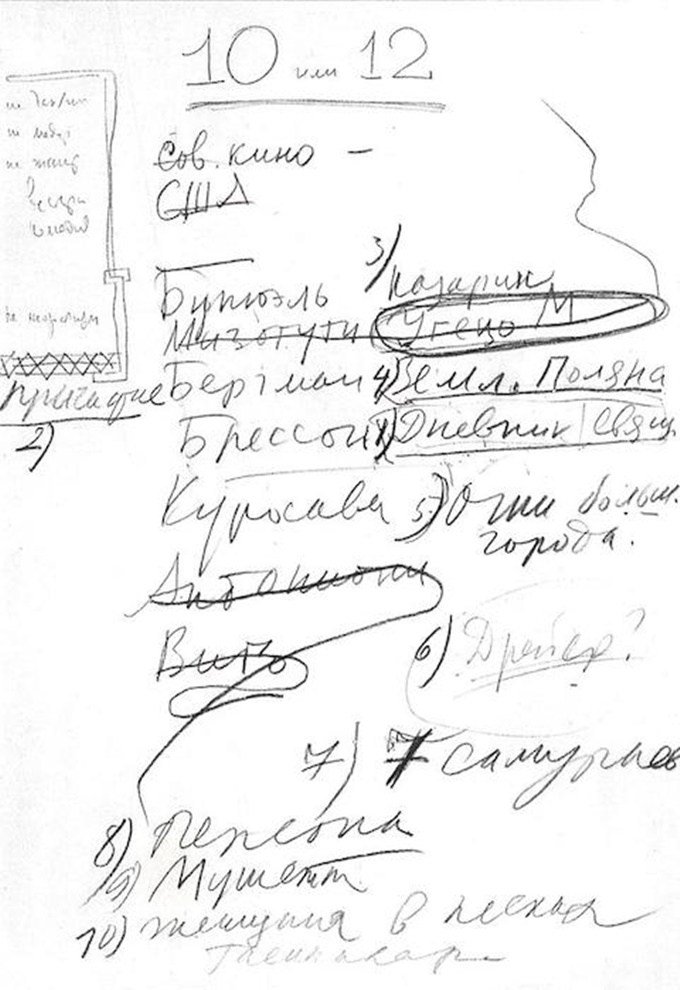 10 или 12
Сов. кино —
США
3) Назарин
Бунюэль
Мизогути Угецу М
Причастие Бергман 4) Земл. Поляна
2) Брессон 1) Дневник свящ.
Куросава 5) Огни больш.
города.
Антониони
Виго
6) Дрейер?
7) 7 самураев
8) Персона
9) Мушетт
10) Женщина в песках